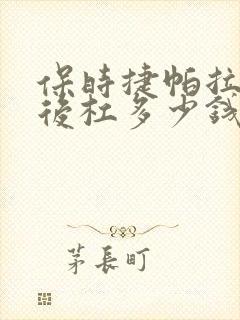 保時捷帕拉
後杠多少錢
茅長町